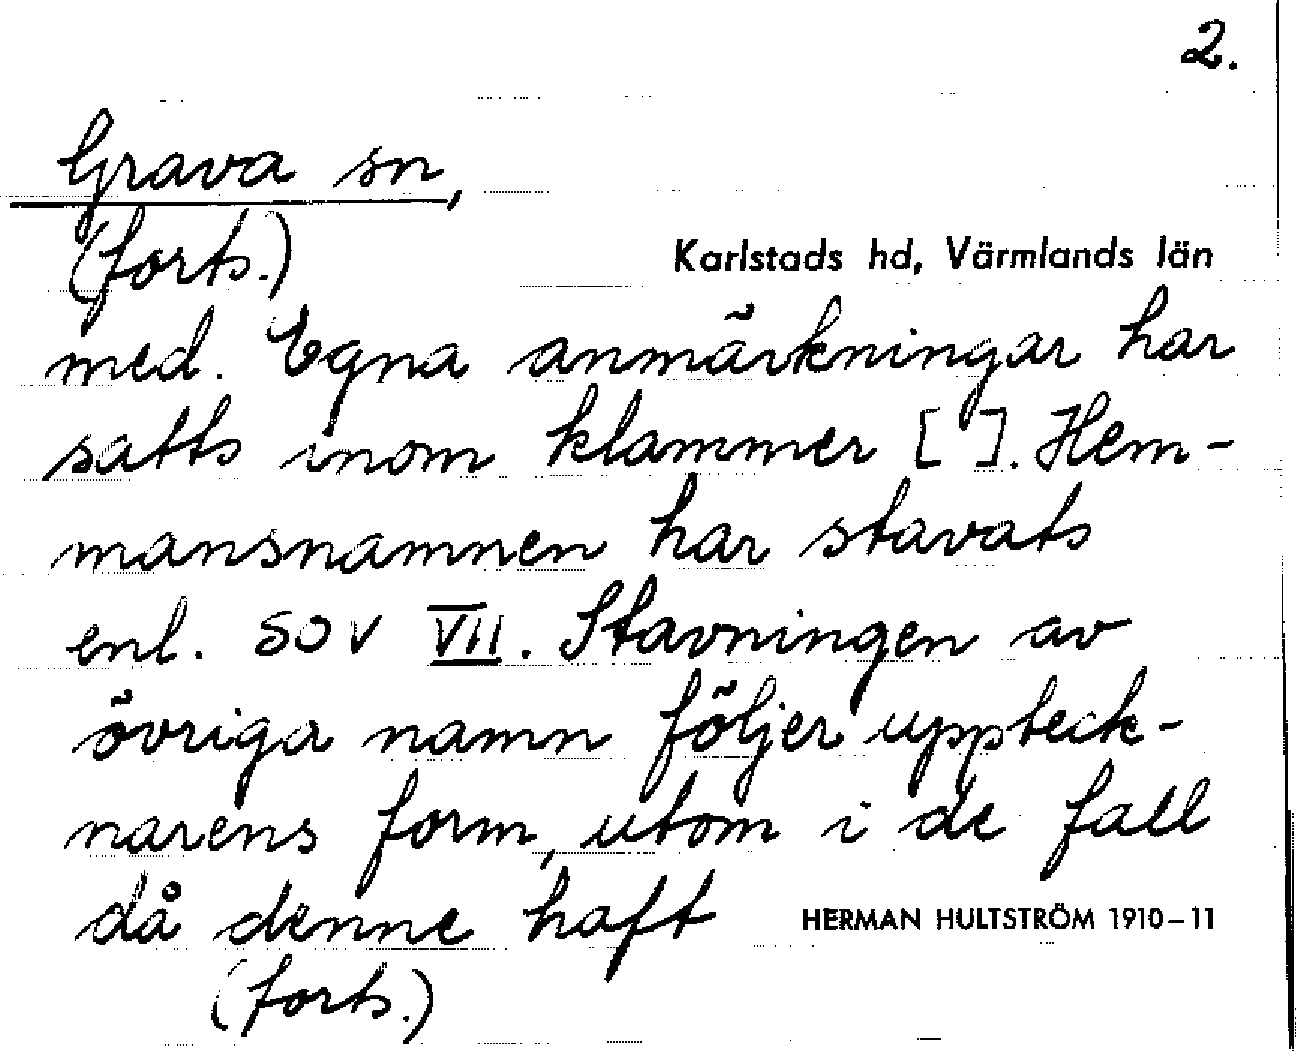 2.
Grava sn,
(forts.)
Karlstads hd, Värmlands län
med. Egna anmärkningar har
satts inom klammer [ ]. Hem-
mansnamnen har stavats
enl. SOV VII. Stavningen av
övriga namn följer uppteck-
narens form, utom i de fall
då denne haft
HERMAN HULTSTRÖM 1910-11
(forts.)